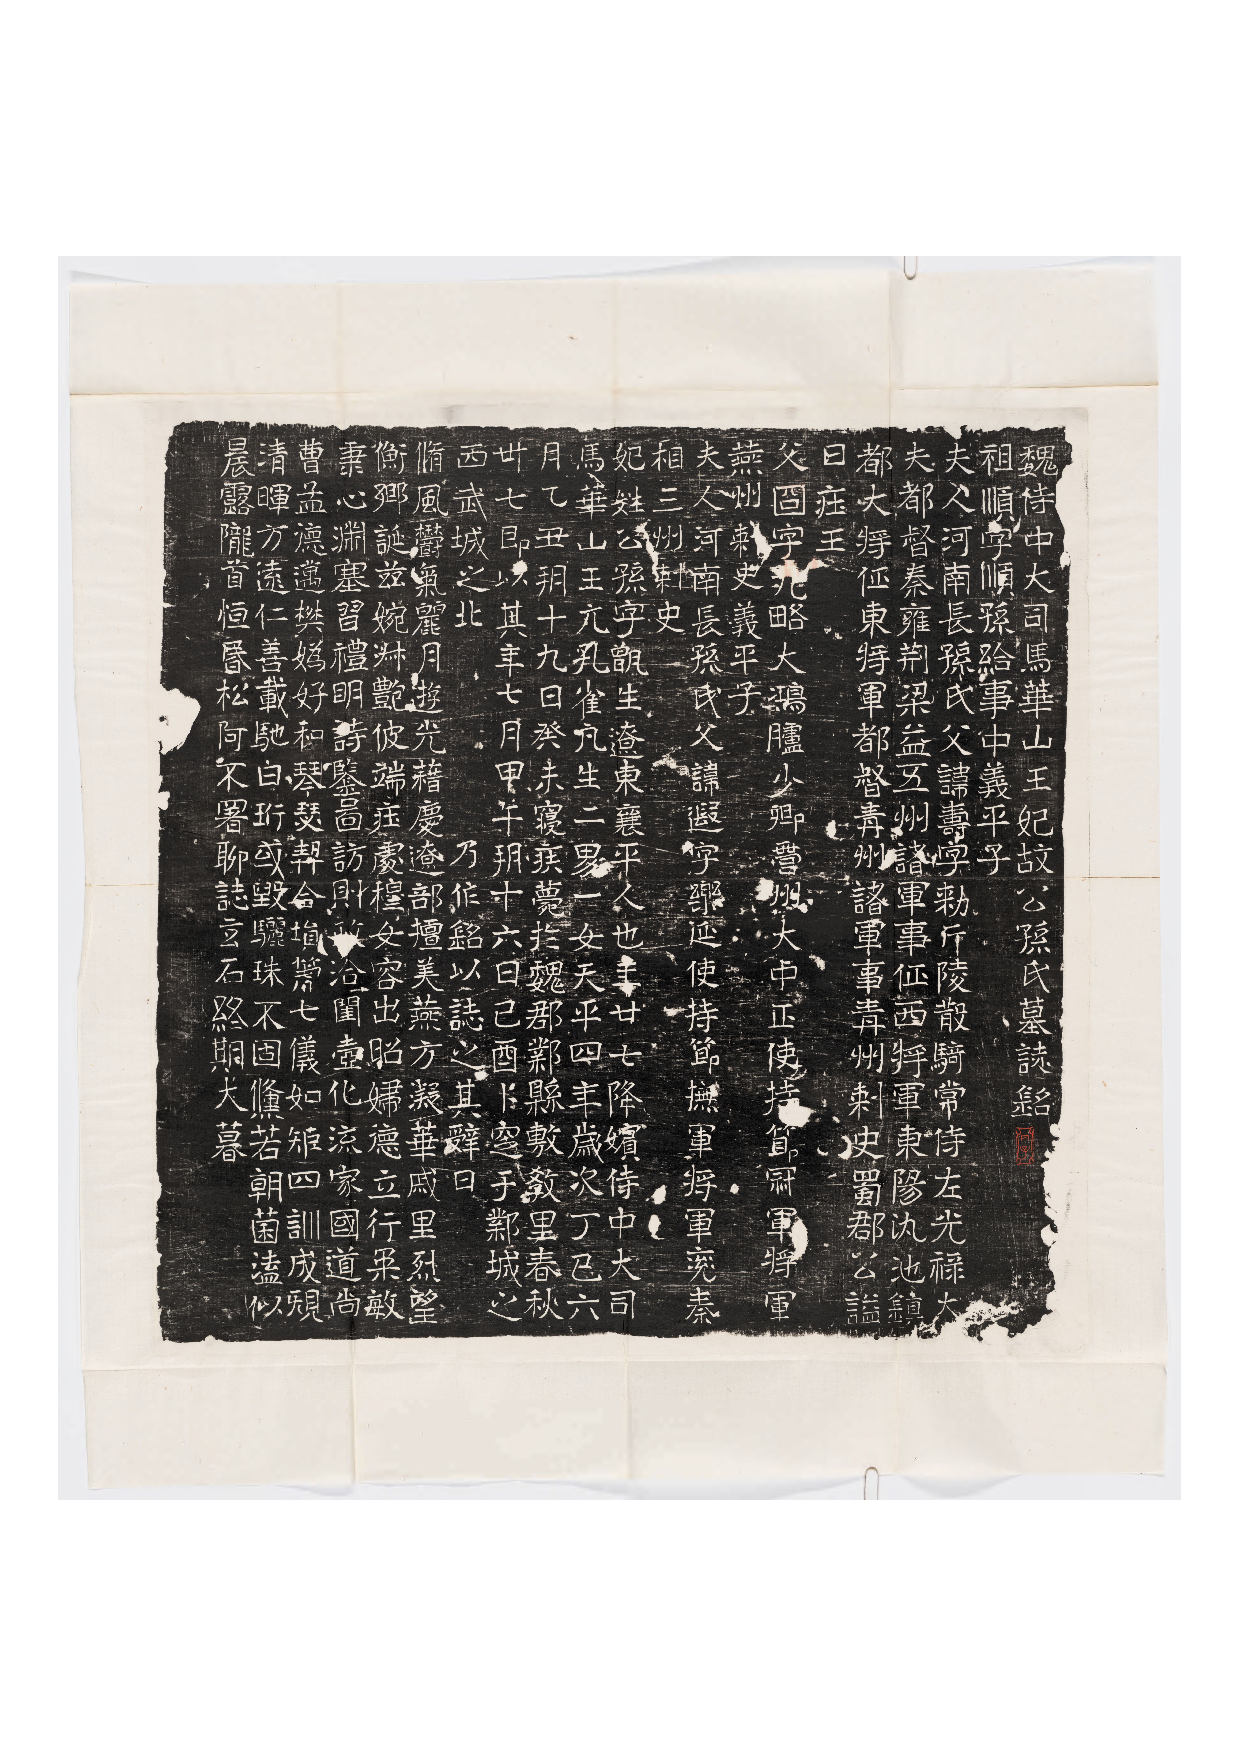 魏侍中大司馬華山王妃故公孫氏墓誌銘
祖順字順孫給事中義平子
夫人河南長孫氏父諱壽字勅斤陵散騎常侍左光祿大
夫都督秦雍荆梁益五州諸軍事征西將軍東陽仇池鎮
都大將征東將軍都督青州諸軍事青州刺史蜀郡公謚
曰莊王
父囧字九略大鴻臚少卿營州大中正使持節冠軍將軍
燕州刺史義平子
夫人河南長孫氏父諱遐字樂延使持節撫軍將軍兗秦
相三州刺史
妃姓公孫字甑生遼東襄平人也年廿七降嬪侍中大司
馬華山王亢孔雀凡生二男一女天平四年歲次丁巳六
月乙丑朔十九日癸未寢疾薨於魏郡鄴縣敷教里春秋
卅七即以其年七月甲午朔十六日己酉卜窆于鄴城之
西武城之北 乃作銘以誌之其辭曰
脩風鬱氣麗月遊光藉慶遼部擅美燕方凝華戚里烈望
衡鄉誕茲婉淑艷彼端莊處穆女容出昭婦德立行柔敏
秉心淵塞習禮明詩鑒圖訪則 洽閨壼化流家國道尚
曹孟德邁樊媯好和琴瑟契合塤篪七儀如矩四訓成規
清暉方遠仁善載馳白珩或毀驪珠不固儵若朝菌溘似
晨露隴首恒昏松阿不署聊誌玄石終期大暮